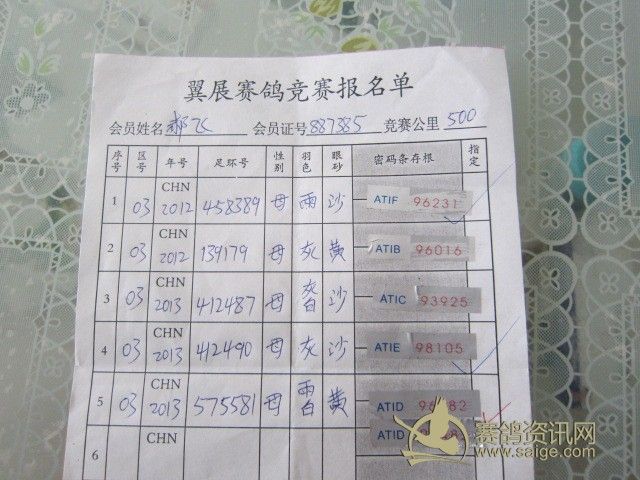 翼展赛鸽竞赛报名单
会员姓名 郝飞 会员证号 887385 竞赛公里 500
序号 区号 年号 足环号 性别 羽色 眼砂 密码条存根 指定
1 03 CHN 2012 458389 母 雨 沙 ATIF 96231
2 03 CHN 2012 139179 母 灰 黄 ATIB 96016
3 03 CHN 2013 412487 母 灰白 沙 ATIC 93925
4 03 CHN 2013 412490 母 灰 沙 ATIE 98105
5 03 CHN 2013 575581 母 雨白 黄 ATID
ATID
6 CHN
赛鸽资讯网
www.saige.com